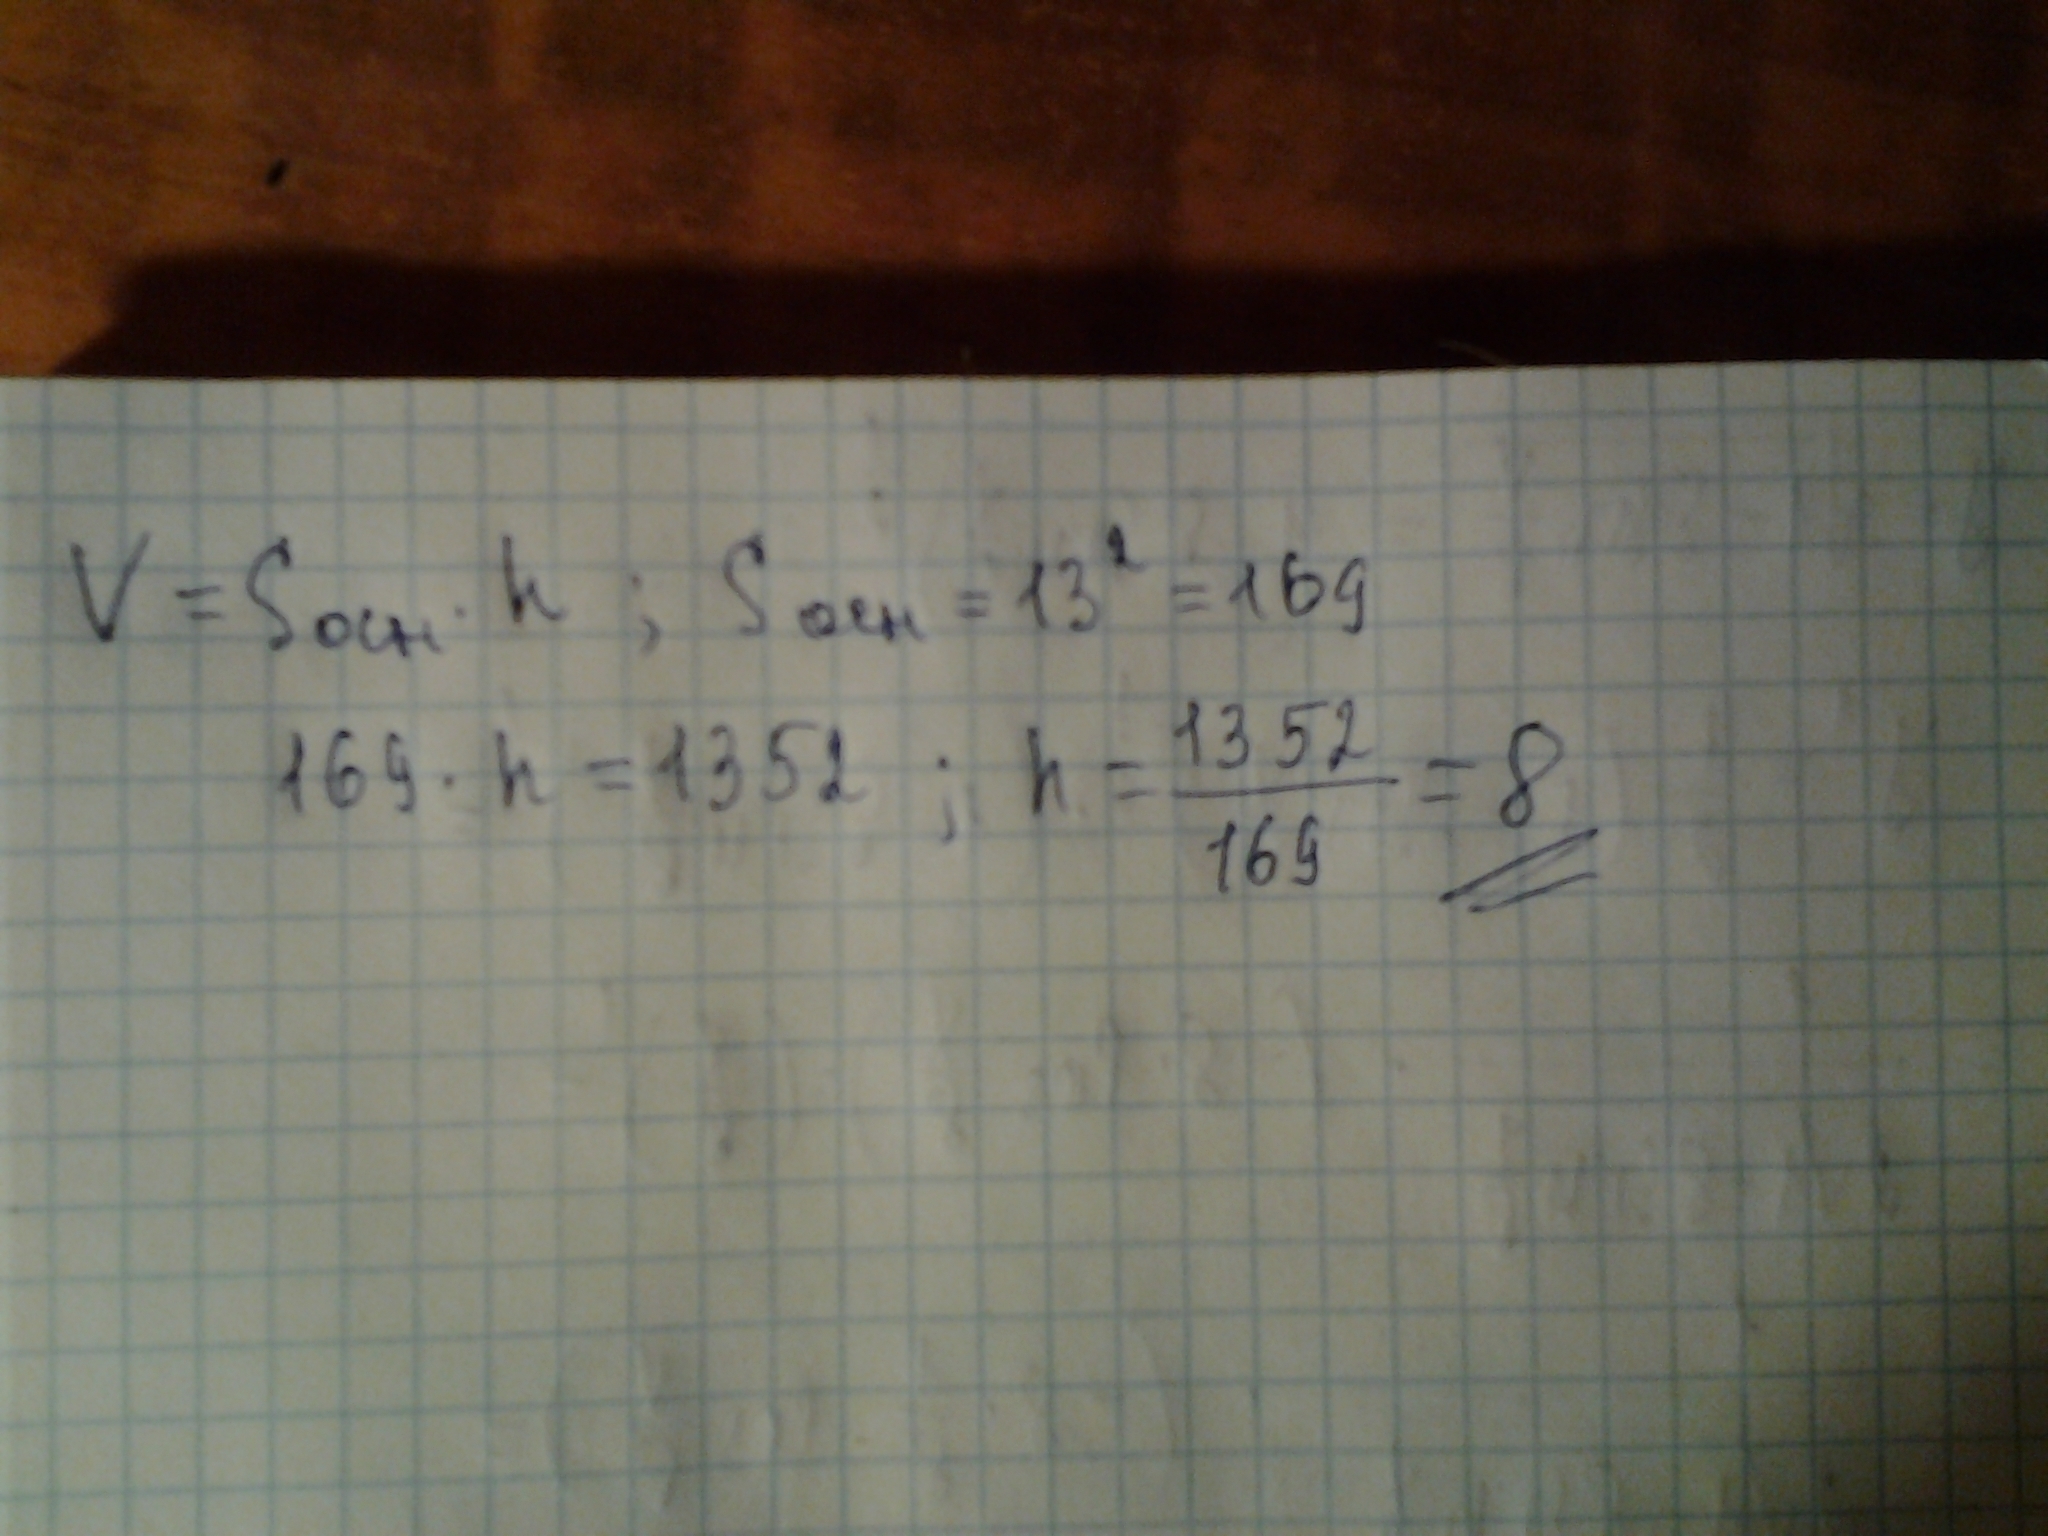 V = Sосн · h ; Sосн = 13² = 169
169 · h = 1352 ; h = 1352/169 = 8